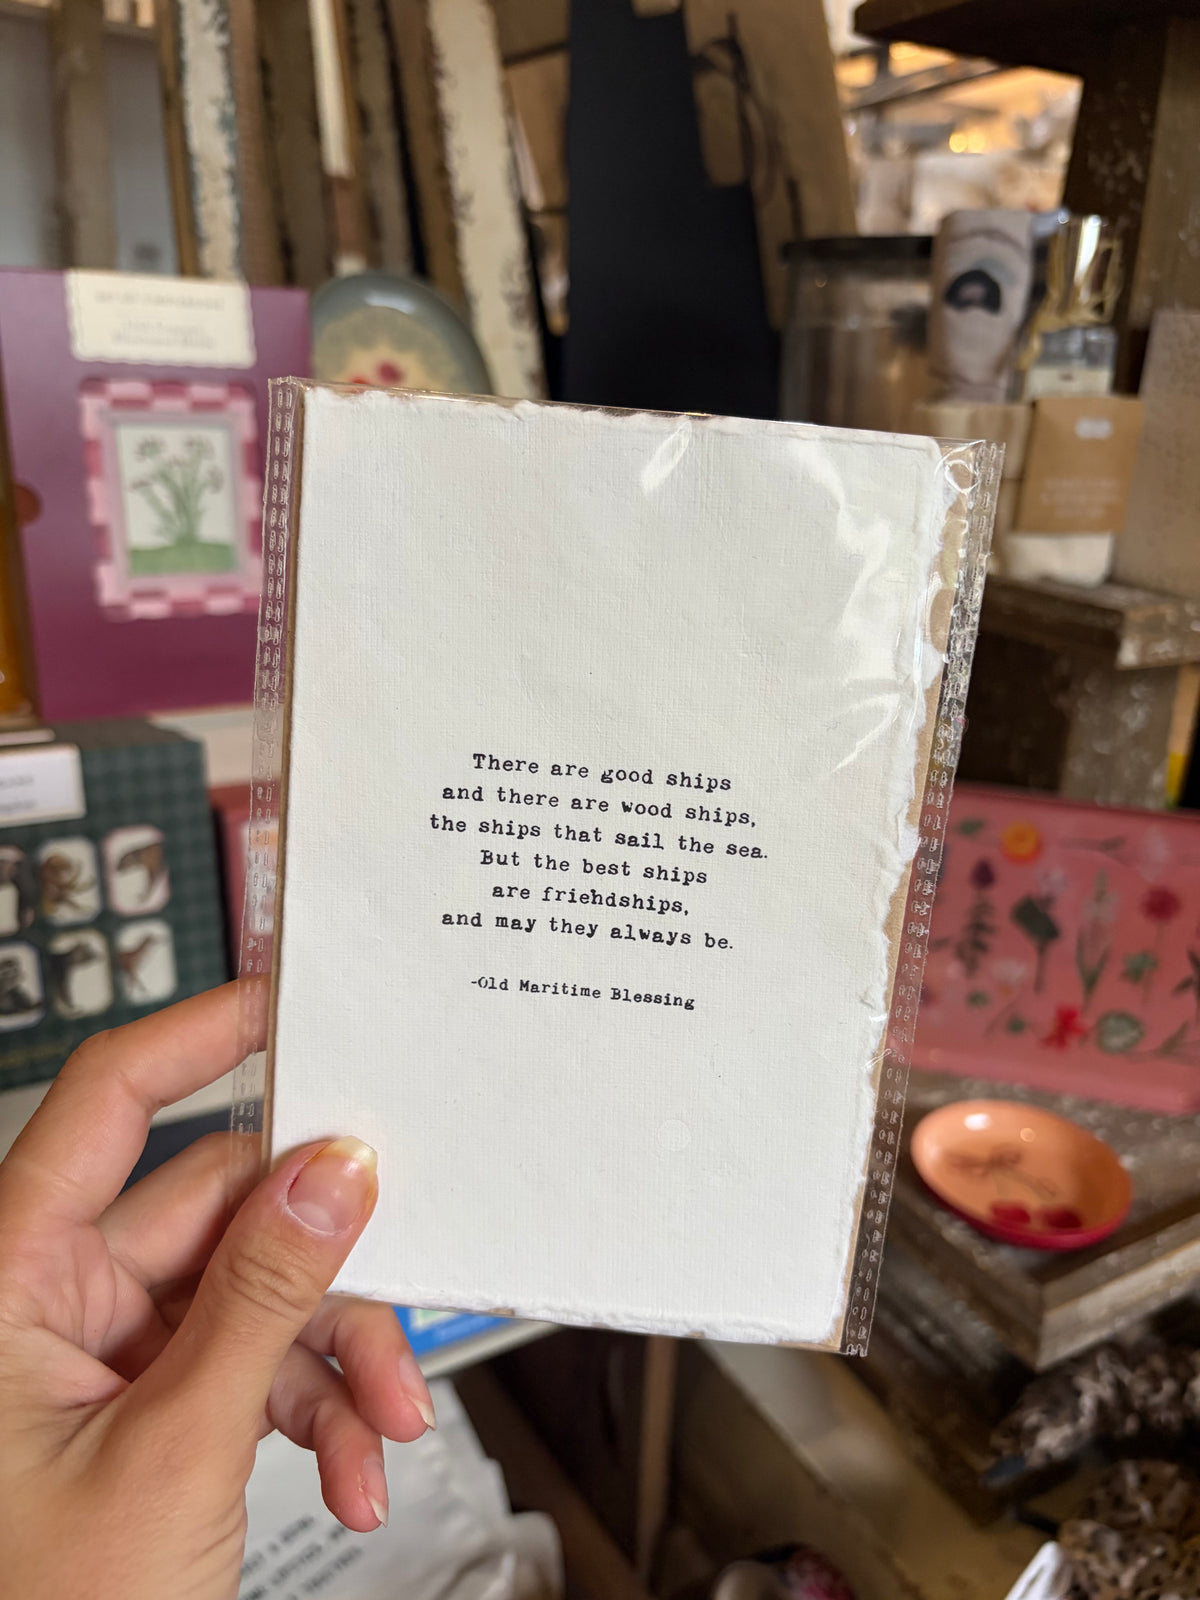 There are good ships
and there are wood ships,
the ships that sail the sea.
But the best ships
are friendships,
and may they always be.
-Old Maritime Blessing